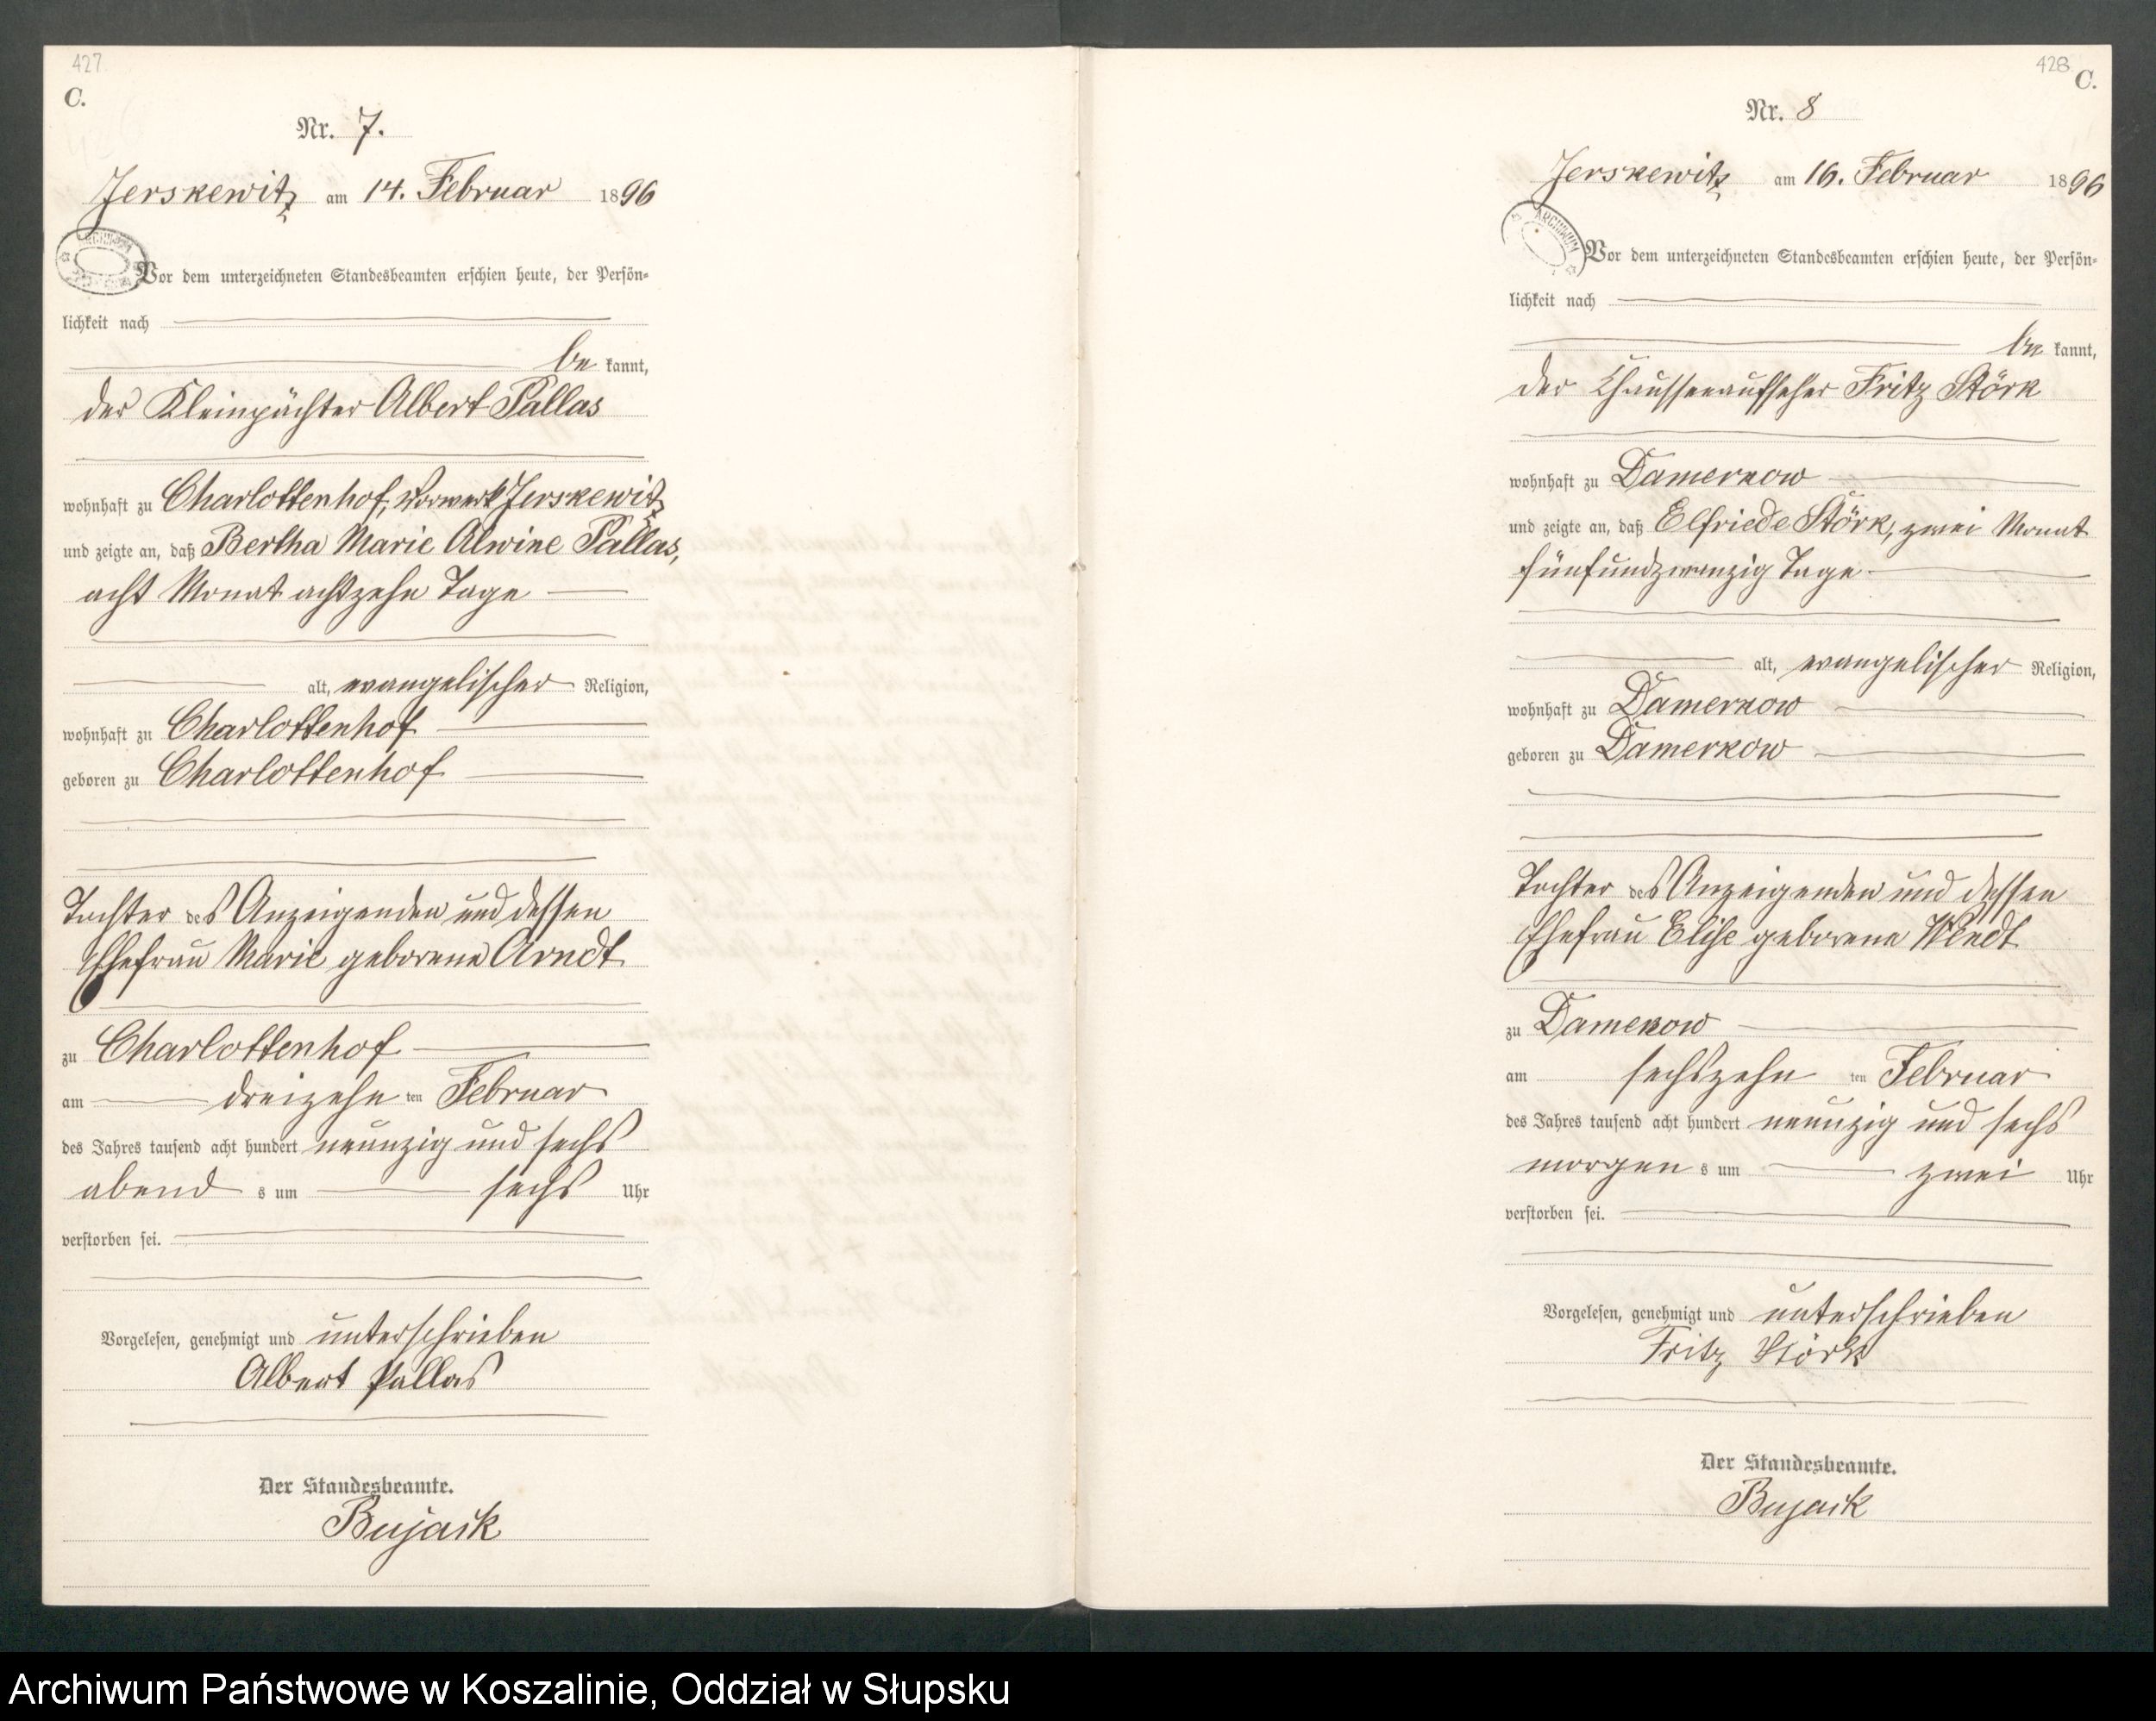 427
C.
Nr. 7.
Jerskewitz am 14. Februar 1896
ARCHIWUM
Vor dem unterzeichneten Standesbeamten erschien heute, der Persön-
lichkeit nach
be kannt,
der Kleinpächter Albert Pallas
wohnhaft zu Charlottenhof, Vorwerk Jerskewitz
und zeigte an, daß Bertha Marie Alwine Pallas,
acht Monat achtzehn Tage
alt, evangelischer Religion,
wohnhaft zu Charlottenhof
geboren zu Charlottenhof
Tochter des Anzeigenden und dessen
Ehefrau Marie geborene Arndt
zu Charlottenhof
am dreizehn ten Februar
des Jahres tausend acht hundert neunzig und sechs
abend s um sechs Uhr
verstorben sei.
Vorgelesen, genehmigt und unterschrieben
Albert Pallas
Der Standesbeamte.
Bujack
428
C.
Nr. 8
Jerskewitz am 16. Februar 1896
ARCHIWUM
Vor dem unterzeichneten Standesbeamten erschien heute, der Persön-
lichkeit nach
be kannt,
der Chausseeaufseher Fritz Störk
wohnhaft zu Damerkow
und zeigte an, daß Elfriede Störk, zwei Monat
fünfundzwanzig Tage
alt, evangelischer Religion,
wohnhaft zu Damerkow
geboren zu Damerkow
Tochter des Anzeigenden und dessen
Ehefrau Elise geborene Wendt
zu Damekow
am sechszehn ten Februar
des Jahres tausend acht hundert neunzig und sechs
morgen s um zwei Uhr
verstorben sei.
Vorgelesen, genehmigt und unterschrieben
Fritz Störk
Der Standesbeamte.
Bujack
Archiwum Państwowe w Koszalinie, Oddział w Słupsku